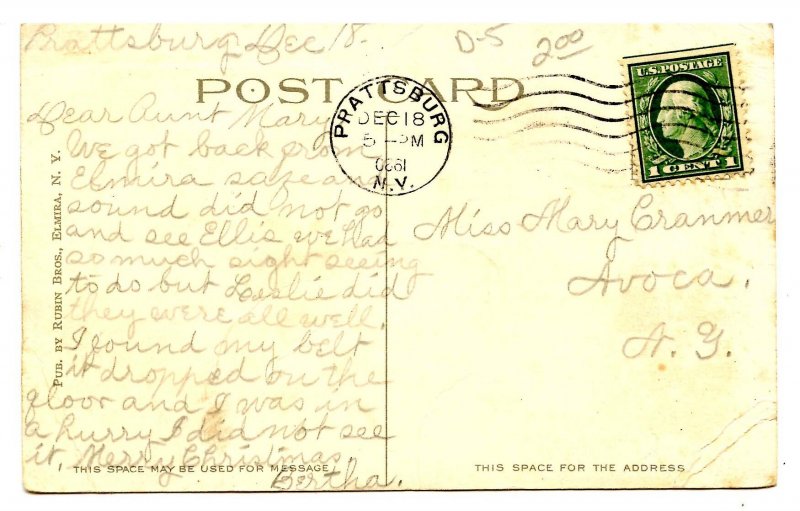 Prattsburg Dec 18.
D-5
2.00
POST CARD
U.S. POSTAGE
1 CENT 1
PRATTSBURG
DEC 18
5 - PM
N.Y.
Dear Aunt Mary
We got back from
Elmira safe and
sound did not go
and see Ellis we had
so much sight seeing
to do but Leslie did
they were all well.
I found my belt
it dropped on the
floor and I was in
a hurry I did not see
it, Merry Christmas.
Bertha.
Miss Mary Cranmer
Avoca.
N. Y.
PUB. BY RUBIN BROS., ELMIRA, N. Y.
THIS SPACE MAY BE USED FOR MESSAGE
THIS SPACE FOR THE ADDRESS